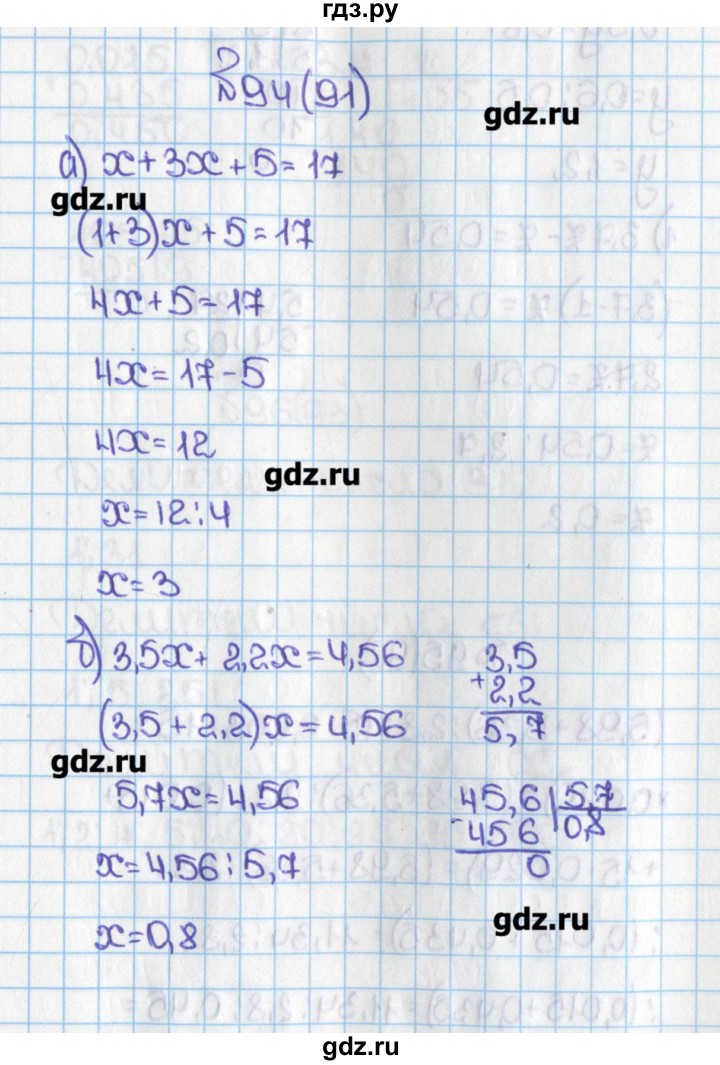 гдз.ру
№94(91)
gdz.ru
а) x+3x+5=17
gdz.ru
(1+3)x+5=17
4x+5=17
4x=17-5
4x=12
gdz.ru
x=12:4
x=3
б) 3,5x+2,2x=4,56
3,5
+2,2
5,7
(3,5+2,2)x=4,56
gdz.ru
5,7x=4,56
45,6 5,7
-456 0,8
0
x=4,56:5,7
gdz.ru
x=0,8
gdz.ru